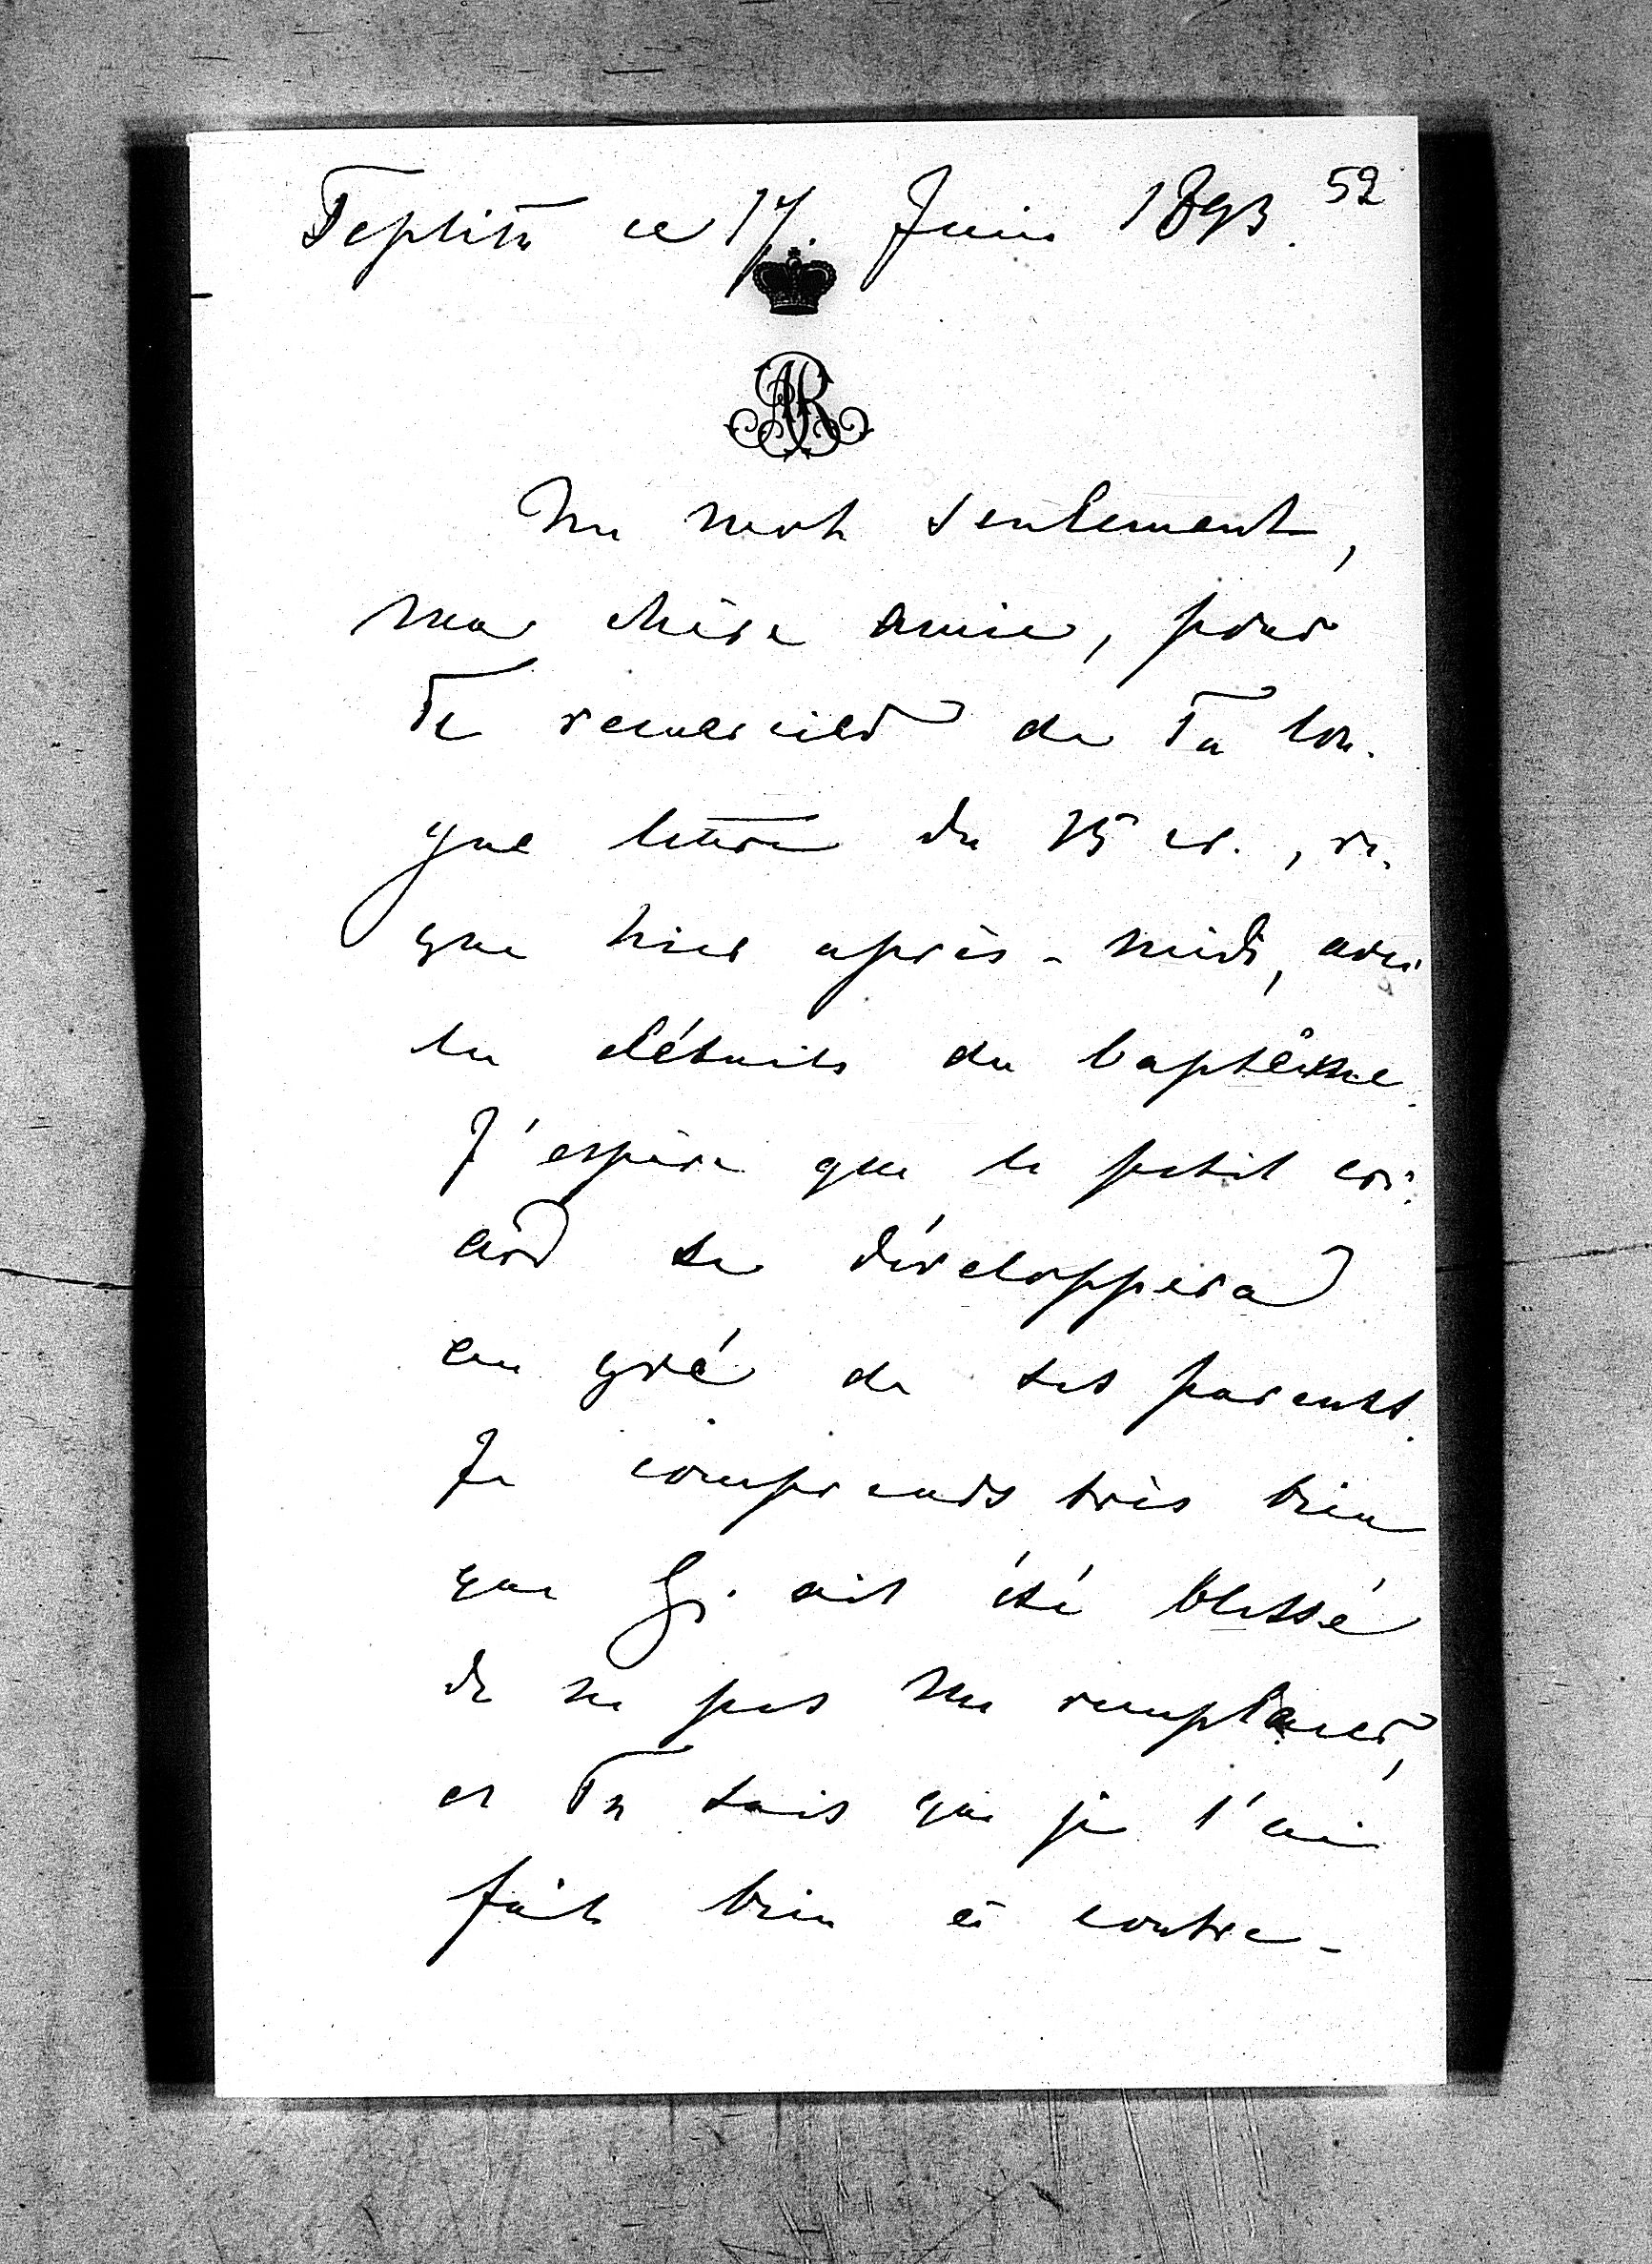 Teplitz ce 17. Juin 1893. 52
AR
Un mot seulement,
ma chère amie, pour
Te remercier de Ta lon-
gue lettre du 15 cr., re-
çue hier après-midi, avec
les détails du baptême.
J'espère que le petit cri-
ard se développera
au gré de ses parents.
Je comprends très bien
que G. ait été blessé
de ne pas me remplacer,
et Tu sais que je l'ai
fait bien à contre-